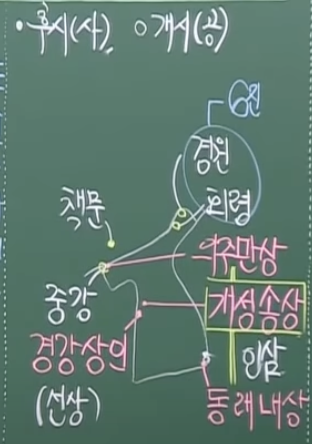 •후시(사) ○개시(공)
6진
경원
회령
책문
의주만상
중강
개성송상
경강상인
인삼
(선상)
동래내상